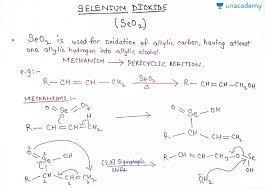 SELENIUM DIOXIDE
unacademy
(SeO₂)
• SeO₂ is used for oxidation of allylic carbon, having atleast
one allylic hydrogen into allylic alcohol.
MECHANISM → PERICYCLIC REACTION.
e.g:-
R-CH=CH-CH₃ SeO₂ Δ R-CH=CH-CH₂OH
MECHANISMS:-
O=Se=O
R-CH=CH-CH₂
H
O=Se-OH
R-CH-CH=CH₂
O=Se-OH
R-CH-CH=CH₂
[2,3] Sigmatropic
R-CH=CH-CH₂-O-Se-OH
OH₂
R-CH=CH-CH₂OH